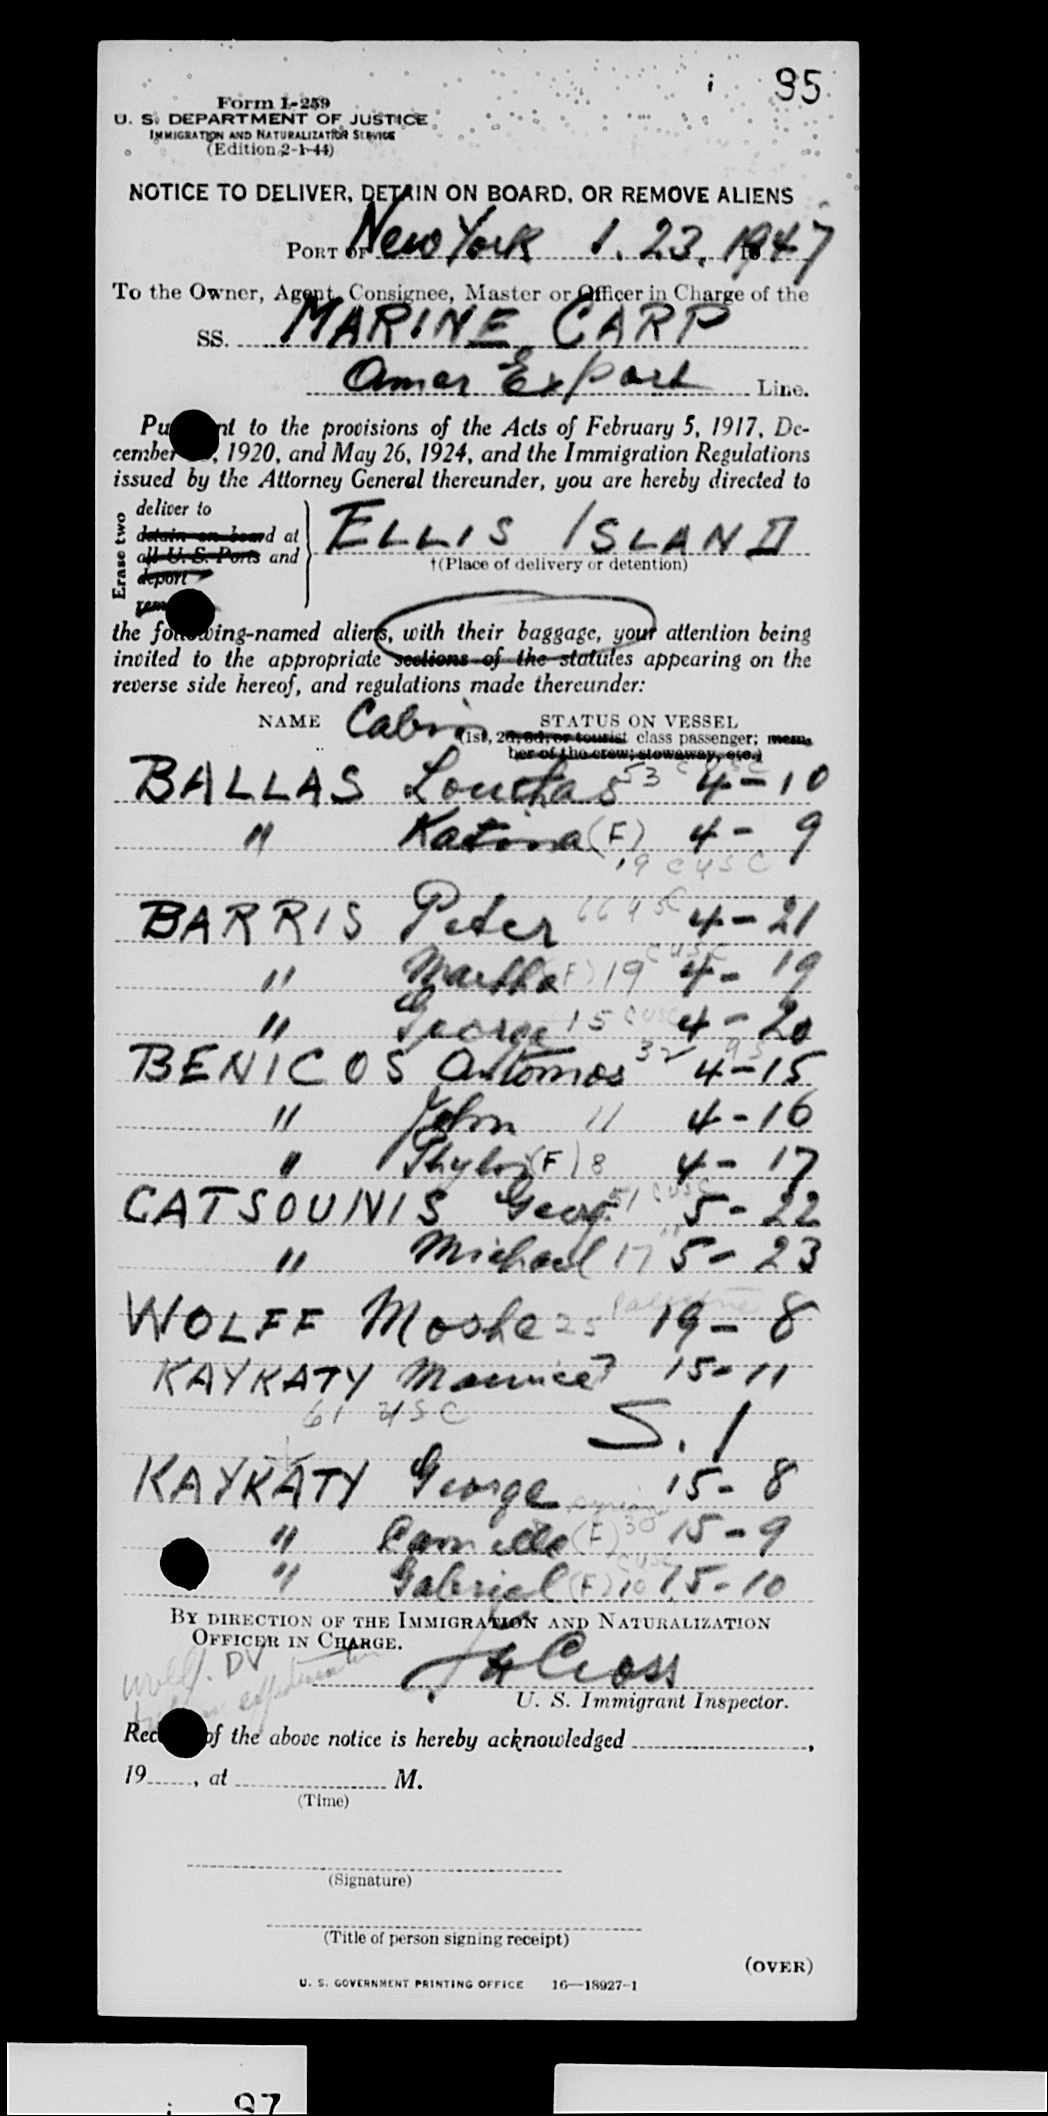 i 95
Form I-259
U. S. DEPARTMENT OF JUSTICE
IMMIGRATION AND NATURALIZATION SERVICE
(Edition 2-1-44)
NOTICE TO DELIVER, DETAIN ON BOARD, OR REMOVE ALIENS
PORT OF New York 1. 23. 1947
To the Owner, Agent, Consignee, Master or Officer in Charge of the
SS. MARINE CARP
Amer Export Line.
Pu nt to the provisions of the Acts of February 5, 1917, De-
cember , 1920, and May 26, 1924, and the Immigration Regulations
issued by the Attorney General thereunder, you are hereby directed to
Erase two
deliver to
detain on board at
all U. S. Ports and
deport
rem
ELLIS ISLAND
†(Place of delivery or detention)
the following-named aliens, with their baggage, your attention being
invited to the appropriate sections of the statutes appearing on the
reverse side hereof, and regulations made thereunder:
NAME Cabin STATUS ON VESSEL
(1st, 2d, 3d, or tourist class passenger; mem-
ber of the crew; stowaway, etc.)
BALLAS Loukas 53 4-10
" Katina (F) 4- 9
19 C USC
BARRIS Peter 66 USC 4-21
" Martha (F) 19 CUSC 4- 19
" George 15 CUSC 4-20
BENICOS Antonios 32 4-15
" John 11 4-16
" (F) 8 4- 17
CATSOUNIS Geog. 51 CUSC 5-22
" Michael 17 " 5- 23
WOLFF Moshe 25 Palestine 19- 8
KAYKATY Maurice 15-11
61 USC S. 1
KAYKATY George 15- 8
" (F) 30 15-9
" Gabriel (F) 10 CUSC 15-10
BY DIRECTION OF THE IMMIGRATION AND NATURALIZATION
OFFICER IN CHARGE.
DV
Cross
U. S. Immigrant Inspector.
Rec of the above notice is hereby acknowledged ,
19 , at M.
(Time)
(Signature)
(Title of person signing receipt)
(OVER)
U. S. GOVERNMENT PRINTING OFFICE 16—18927-1
i 97